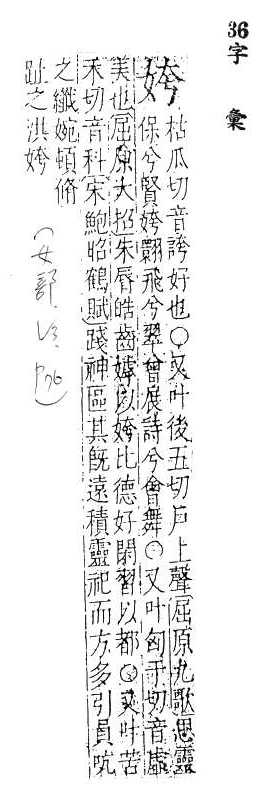 36字彙
姱枯瓜切音誇好也○又叶後五切戶上聲屈原九歌思靈
保兮賢姱翾飛兮翠曾展詩兮會舞○又叶匈于切音虛
美也屈原大招朱脣皓齒嫭以姱比德好閑習以都○又叶苦
禾切音科宋鮑昭鶴賦踐神區其旣遠積靈祀而方多引員吭
之纖婉頓脩
趾之洪姱
(女部 P76)